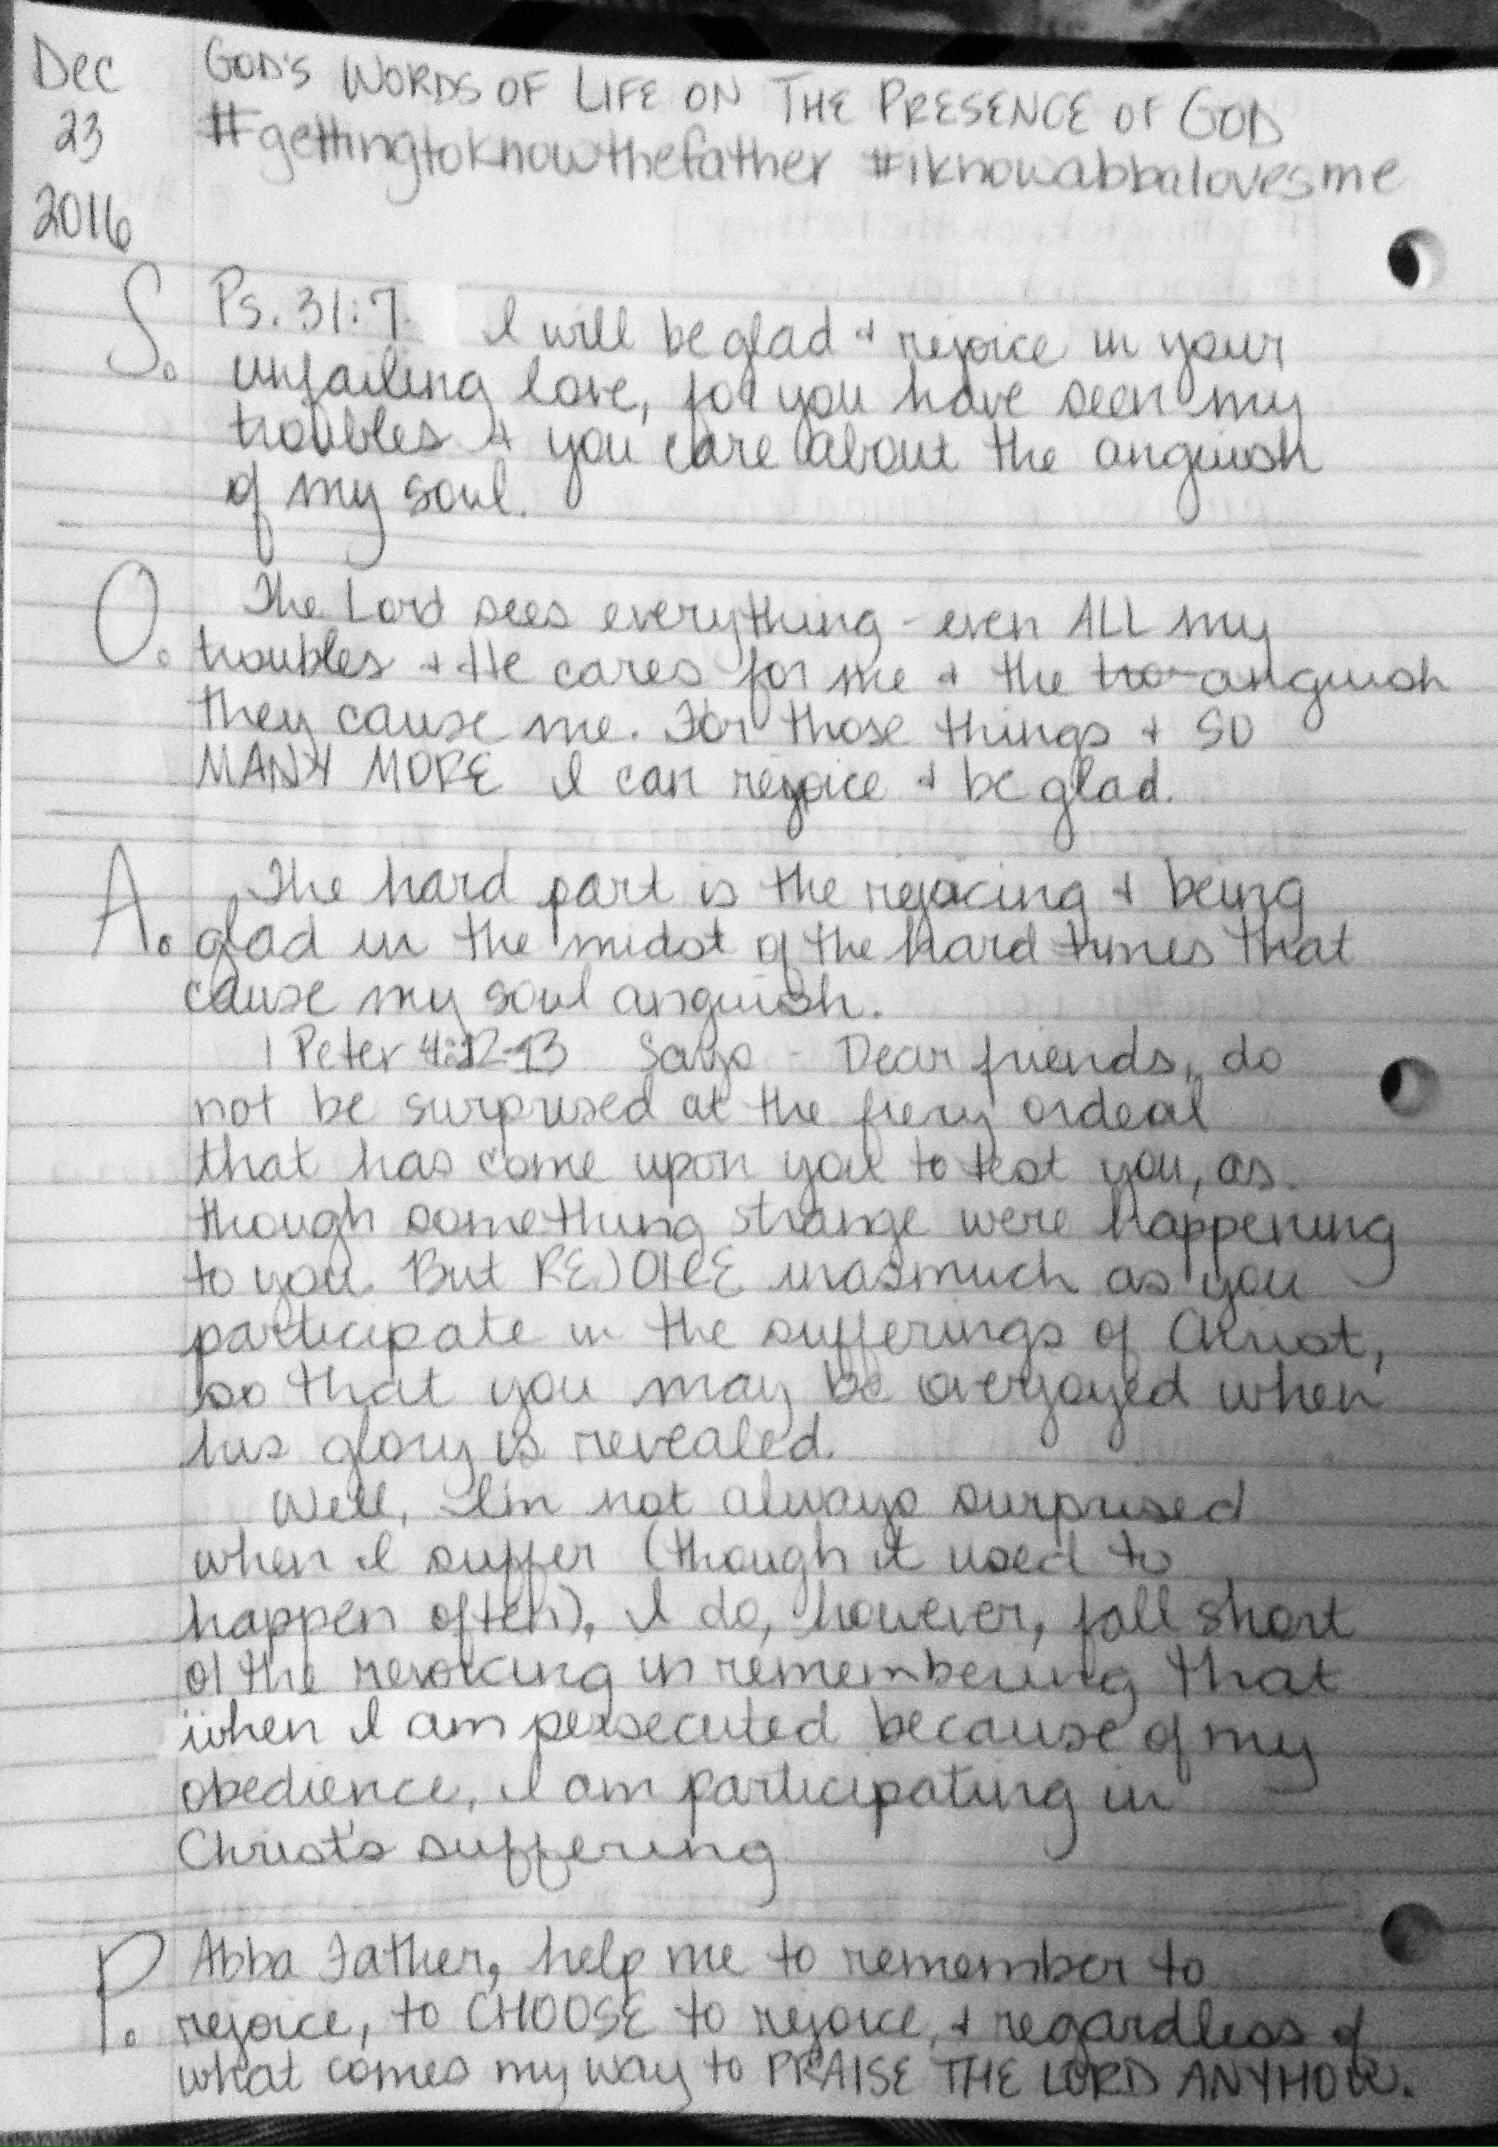 Dec
23
2016
GOD'S WORDS OF LIFE ON THE PRESENCE OF GOD
#gettingtoknowthefather #iknowabbalovesme
S. Ps. 31:7 I will be glad + rejoice in your
unfailing love, for you have seen my
troubles + you care about the anguish
of my soul.
O. The Lord sees everything - even ALL my
troubles + He cares for me + the tro anguish
they cause me. For those things + SO
MANY MORE I can rejoice + be glad.
A. The hard part is the rejoicing + being
glad in the midst of the hard times that
cause my soul anguish.
1 Peter 4:12-13 Says - Dear friends, do
not be surprised at the fiery ordeal
that has come upon you to test you, as
though something strange were happening
to you. But REJOICE inasmuch as you
participate in the sufferings of Christ,
so that you may be overjoyed when
his glory is revealed.
Well, I'm not always surprised
when I suffer (though it used to
happen often). I do, however, fall short
of the rejoicing in remembering that
when I am persecuted because of my
obedience, I am participating in
Christ's suffering
P. Abba Father, help me to remember to
rejoice, to CHOOSE to rejoice, + regardless of
what comes my way to PRAISE THE LORD ANYHOW.